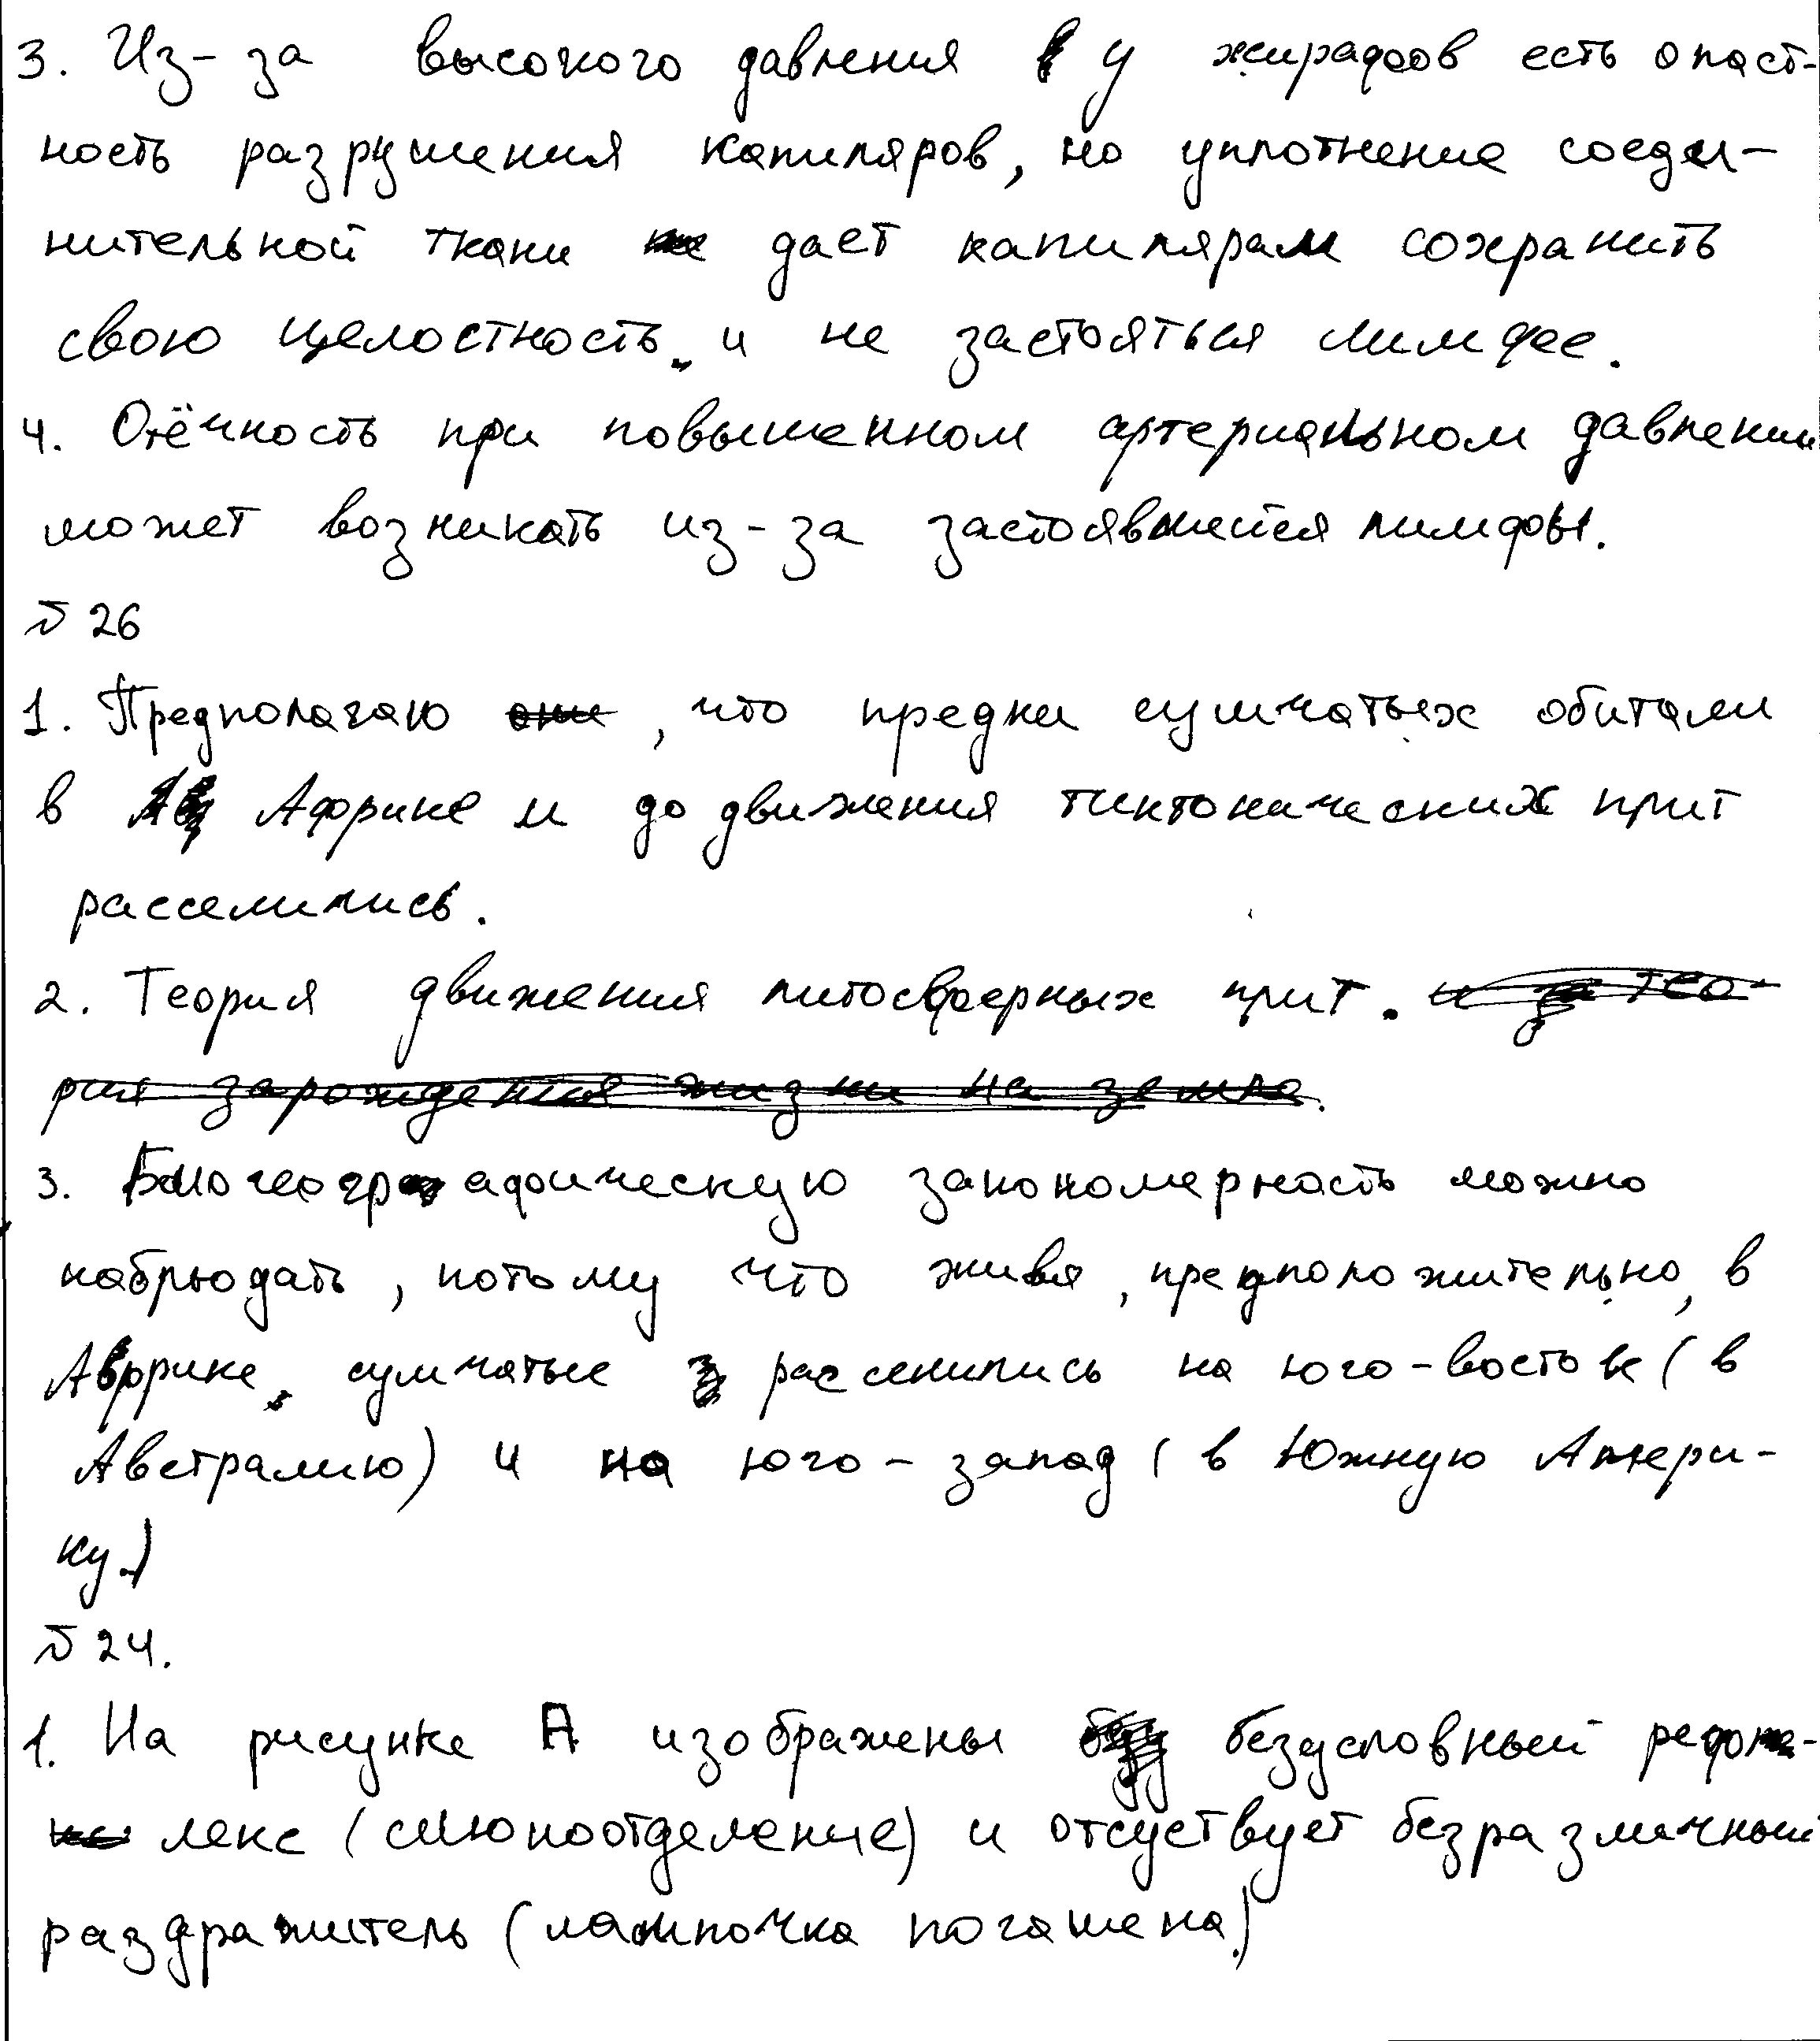 3. Из-за высокого давления у жирафов есть опаст-
ность разрушения капиляров, но уплотнение соеди-
нительной ткани дает капилярам сохранить
свою целостность и не застояться лимфе.
4. Отёчность при повышенном артериальном давлении
может возникать из-за застоявшейся лимфы.
№ 26
1. Предполагаю они, что предки сумчатых обитали
в Африке и до движения тиктонических плит
расселились.
2. Теория движения литосферных плит. и за тео-
рия зарождения жизни на земле.
3. Биогеографическую закономерность можно
наблюдать, потому что живя, предположительно, в
Африке, сумчатые расселились на юго-восток (в
Австралию) и на юго-запад (в Южную Амери-
ку.)
№ 24.
1. На рисунке А изображены безусловный реф-
лекс (слюноотделение) и отсуствует безразличный
раздражитель (лампочка погашена.)